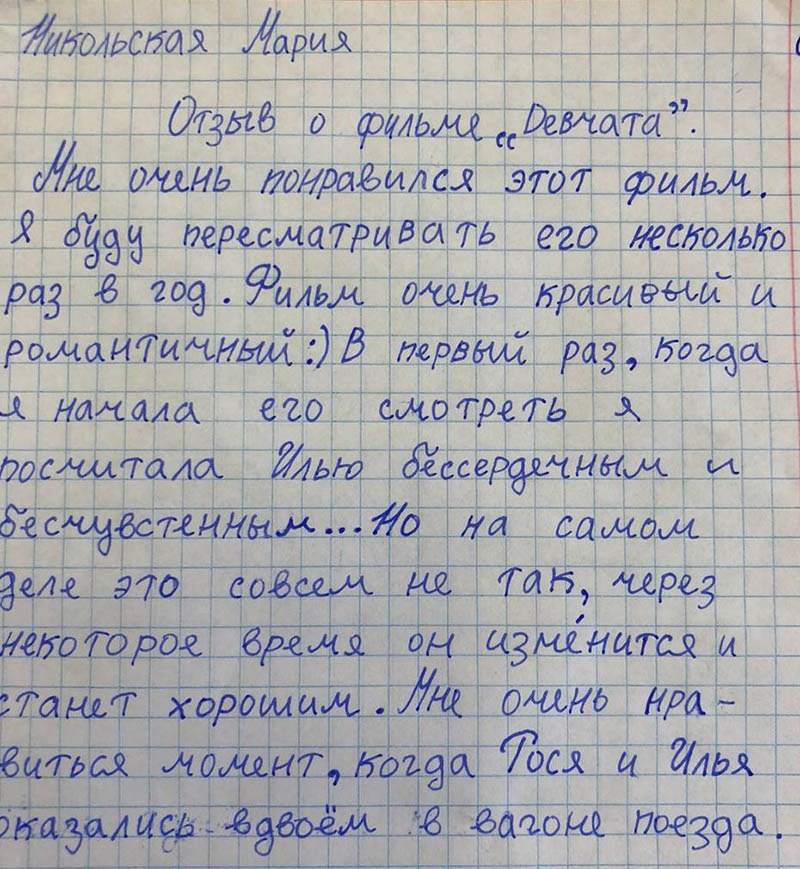 Никольская Мария
Отзыв о фильме „Девчата”.
Мне очень понравился этот фильм.
Я буду пересматривать его несколько
раз в год. Фильм очень красивый и
романтичный:) В первый раз, когда
я начала его смотреть я
посчитала Илью бессердечным и
бесчувстенным... Но на самом
деле это совсем не так, через
некоторое время он изме́нится и
станет хорошим. Мне очень нра-
виться момент, когда Тося и Илья
оказались вдвоём в вагоне поезда.